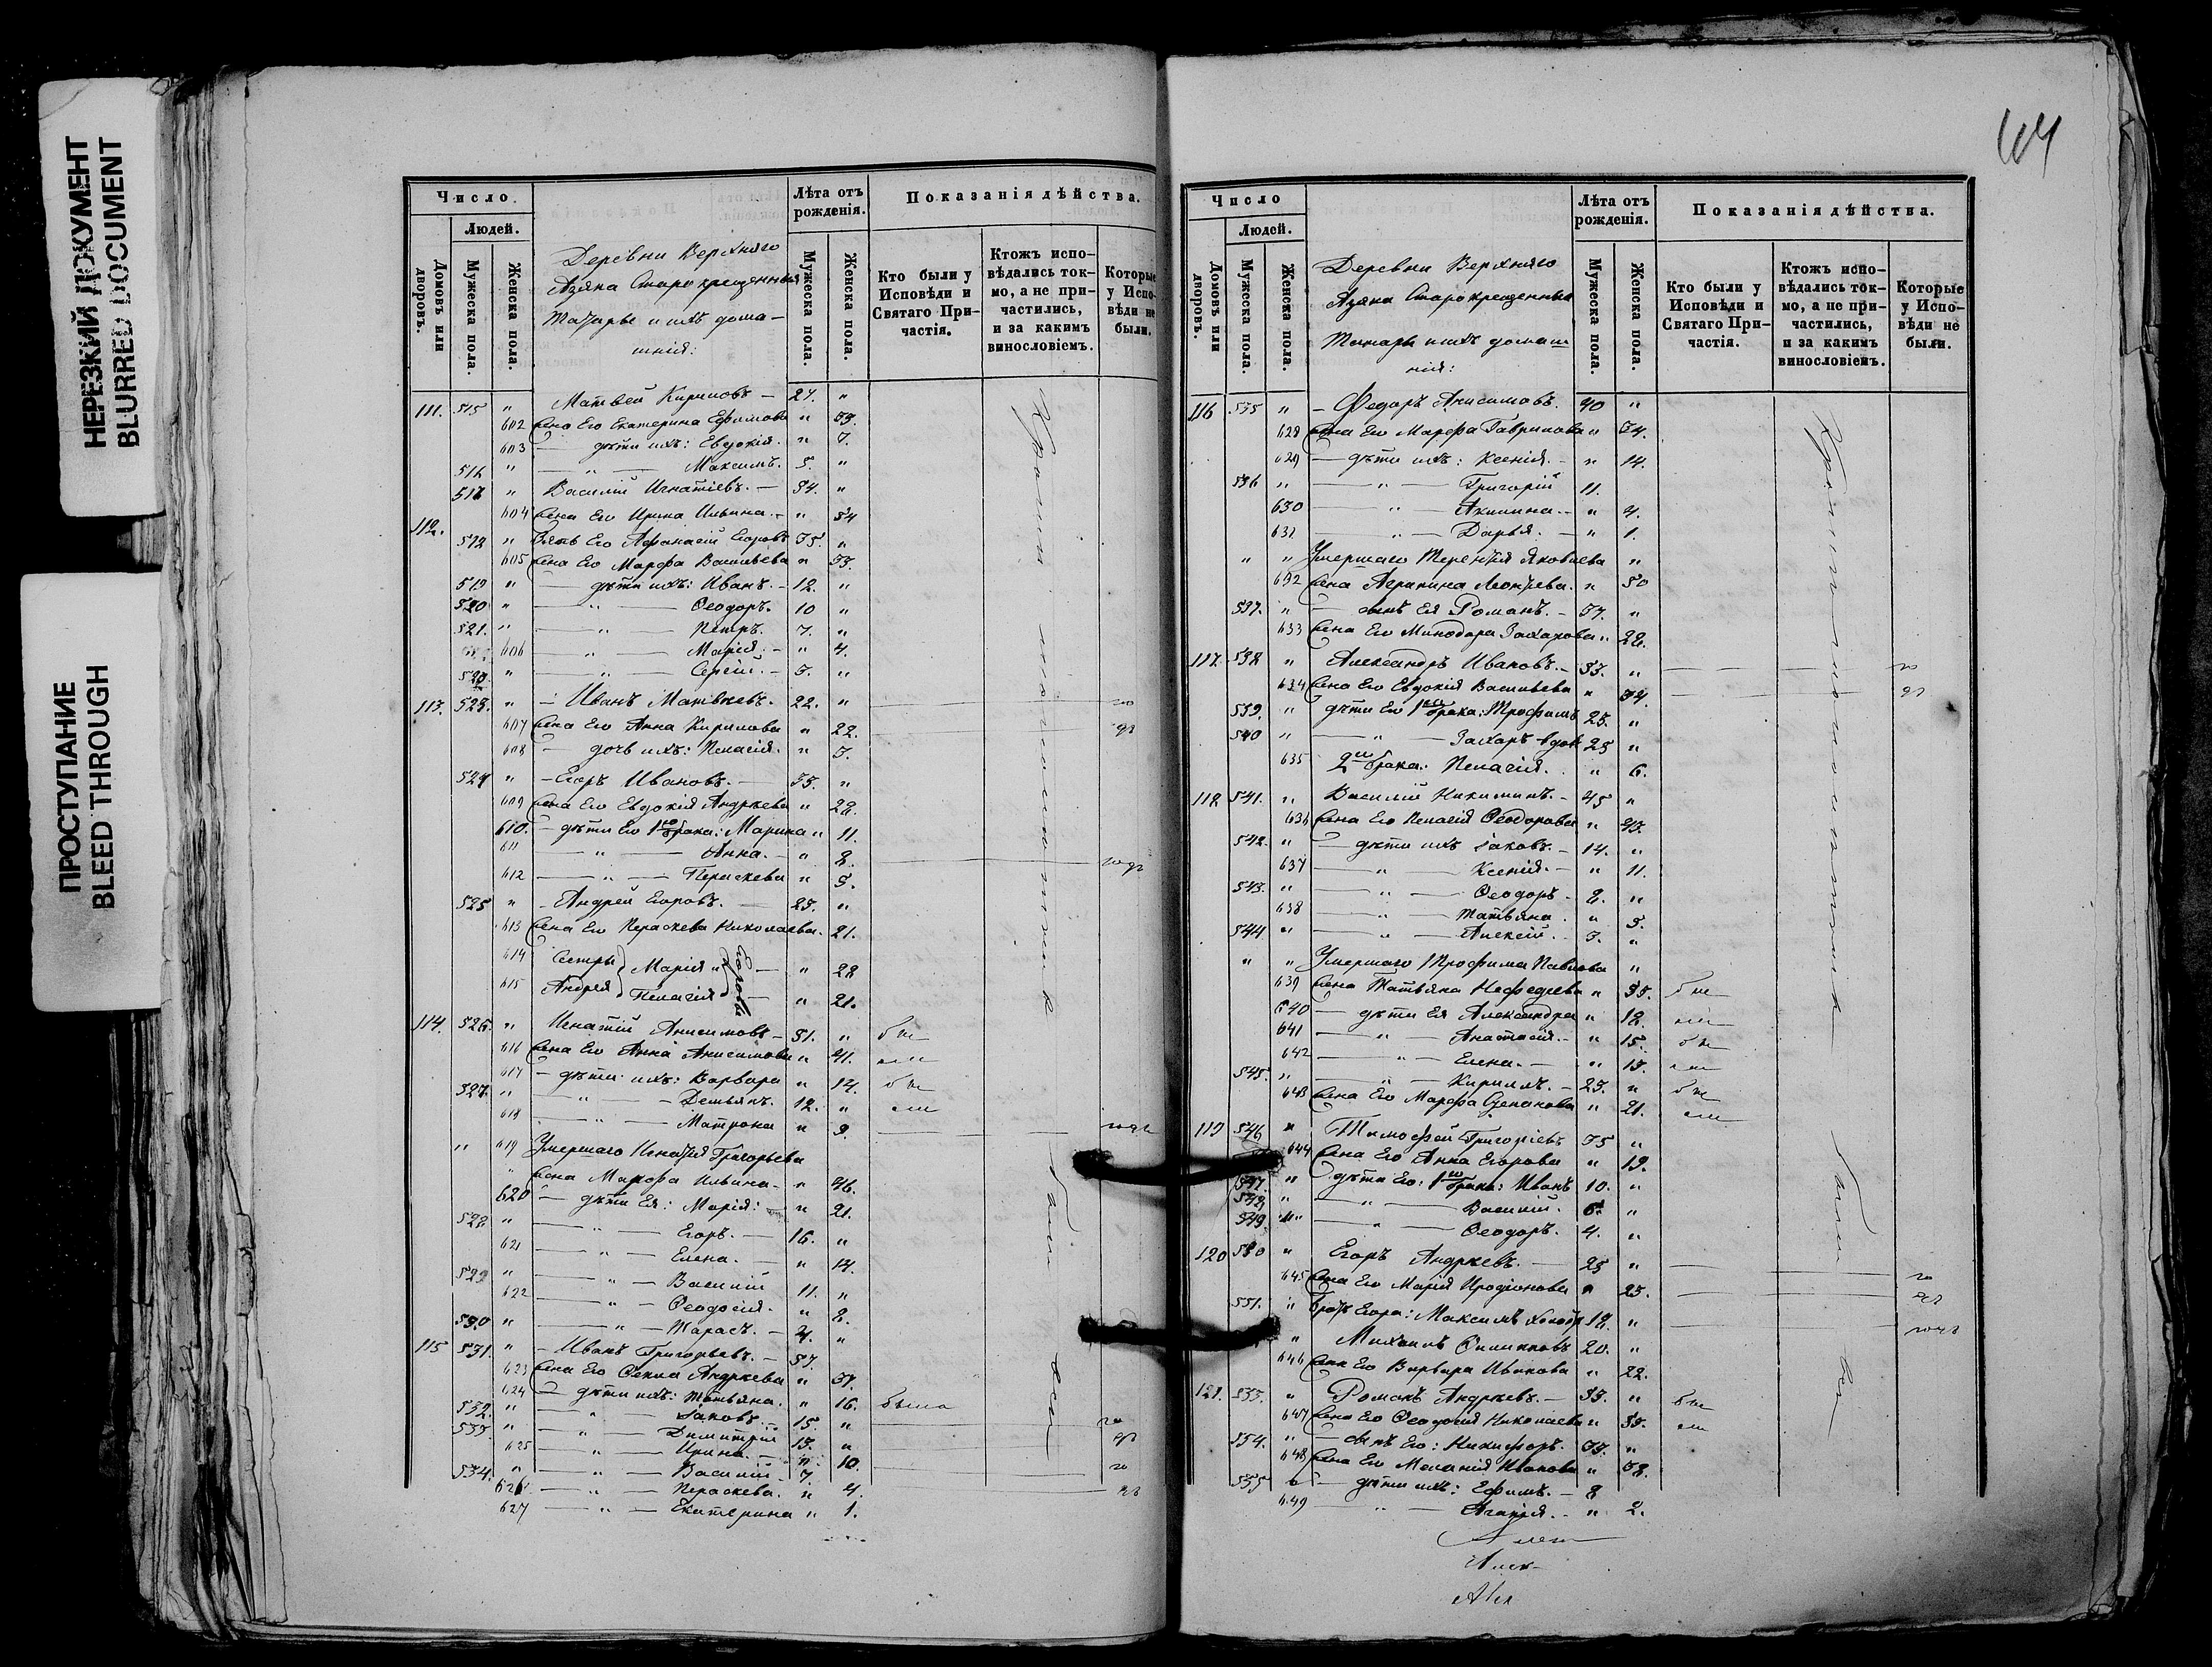 НЕРЕЗКИЙ ДОКУМЕНТ
BLURRED DOCUMENT
ПРОСТУПАНИЕ
BLEED THROUGH
Число.
Людей.
Домовъ или дворовъ.
Мужеска пола.
Женска пола.
Деревни Верхняго
Азяка Старокрещенныя
Татарье и ихъ дома-
шнія:
Лѣта отъ рожденія.
Мужеска пола.
Женска пола.
Показанія дѣйства.
Кто были у Исповѣди и Святаго При-частія.
Ктожъ испо-вѣдались ток-мо, а не при-частились, и за какимъ винословіемъ.
Которые у Испо-вѣди не были.
111. 515 " Матвей Кириловъ - 27. "
602 Жена Его Екатерина Ефимова " 33.
603 — дѣти ихъ: Евдокія. " 7.
516 " — " — Максимъ. 5. "
517 " Василій Игнатіевъ. — 54. "
604 Жена Его Ирина Ильина. - " 54
112. 518 " Зять Его Афанасій Егоровъ 35. "
605 Жена Его Марфа Васильева " 33.
519 " — дѣти ихъ: Иванъ. - 12. "
520 " — " — Ѳеодоръ. 10 "
521. " — " — Петръ. 7. "
606 — " — Марія. - " 4.
" — " — Сергій. - 3. "
113. 523. " - Иванъ Матвѣевъ. 22. "
607 Жена Его Анна Кирилова " 22.
608 — дочь ихъ: Пелагія. " 3.
524 " - Егоръ Ивановъ. — 33. "
609 Жена Его Евдокія Андреева " 28.
610. — дѣти Его 1го брака: Марина " 11.
611 — " — Анна. - " 8.
612 — " — Параскева " 5.
525 " - Андрей Егоровъ. — 25. "
613 Жена Его Параскева Николаева. 21.
614 Сестры Марія " Егоровы — " 22
615 Андрея Пелагія — " 21.
114. 526. " Игнатій Анисимовъ - 51. " бы
616 Жена Его Анна Анисимова " 41. ли
617 — дѣти ихъ: Варвара " 14. бы
527. " — " — Демьянъ. 12. " ли
618 — " — Матрона " 9.
" 619 Умершаго Игнатія Григорьева
" Жена Марфа Ильина - " 46.
620 — дѣти Ея: Марія: — " 21.
528. " — " — Егоръ. — 16. "
621 — " — Елена. — " 14.
529 " — " — Василій 11. "
622 — " — Ѳеодосія. " 8.
530 " — " — Тарасъ. - 4. "
115 531. " - Иванъ Григорьевъ. - 37.
623 Жена Его Ѳекла Андреева " 37.
624 — дѣти ихъ: Татьяна. " 16. была
532. " — " — Іаковъ. 15. "
533. " — " — Димитрій 13. "
625 — " — Ирина. — " 10.
534. " — " — Василій. 7.
626 — " — Параскева. " 4.
627 — " — Екатерина " 1.
64
Число
Людей.
Домовъ или дворовъ.
Мужеска пола.
Женска пола.
Деревни Верхняго
Азяка Старокрещенныя
Татары и ихъ домаш
нія:
Лѣта отъ рожденія.
Мужеска пола.
Женска пола.
Показанія дѣйства.
Кто были у Исповѣди и Святаго При-частія.
Ктожъ испо-вѣдались ток-мо, а не при-частились, и за какимъ винословіемъ.
Которые у Испо-вѣди не были.
116 535 " - Федоръ Анисимовъ. 40 "
628 Жена Его Марфа Гаврилова " 34.
629 — дѣти ихъ: Ксенія. - " 14.
536 " — " — Григорій 11.
630 — " — Акилина. - " 4.
631 — " — Дарья. - " 1.
" " Умершаго Терентія Яковлева "
632 Жена Агрипина Леонтьева. " 50
537. " — сынъ Ея Романъ. - 37. "
633 Жена Его Минодора Захарова " 28.
117. 538 " Александръ Ивановъ. - 53. "
634 Жена Его Евдокія Васильева " 34.
539. " дѣти Его 1го брака: Трофимъ 25. "
540 " — " — Захаръ вдов 25 "
635 2го брака: Пелагія. " 6.
118 541. " Василій Никитинъ. - 45 "
636 Жена Его Пелагія Ѳеодорова " 43.
542. " — дѣти ихъ Іаковъ. - 14. "
637 — " — Ксенія. - " 11.
543. " — " — Ѳеодоръ - 8. "
638 — " — Татьяна. " 5.
544 " — " — Алексій. 3. "
" " Умершаго Трофима Павлова "
639 Жена Татьяна Нефедьева " 55. бы
640 — дѣти Ея Александра " 18. ли
641 — " — Анастасія. - " 15. бы
642 — " — Елена. - " 13. ли
545. " — " — Кирилъ. - 23. " бы
643 Жена Его Марфа Степанова " 21. ли
119 546 " Тимофей Григоріевъ 35 "
644 Жена Его Анна Егорова " 19.
547. " дѣти Его: 1го брака: Иванъ 10. "
548. " — " — Василій. 6. "
549. " — " — Ѳеодоръ. 4. "
120 550 " Егоръ Андреевъ. — 25 "
645 Жена Его Марія Иродіонова " 25.
551. " братъ Егора: Максимъ 18. "
" Михаилъ 20. "
646 Жена Его Варвара Иванова " 22.
121. 553. " Романъ Андреевъ. - 53. " бы
647 Жена Его Ѳеодосія Николаева " 55. ли
554. " — сынъ Его: Никифоръ. 33. "
648 Жена Его Меланія Иванова " 38.
555 " — дѣти ихъ: Ефимъ. - 8
649 — " — Агапія. - " 2.